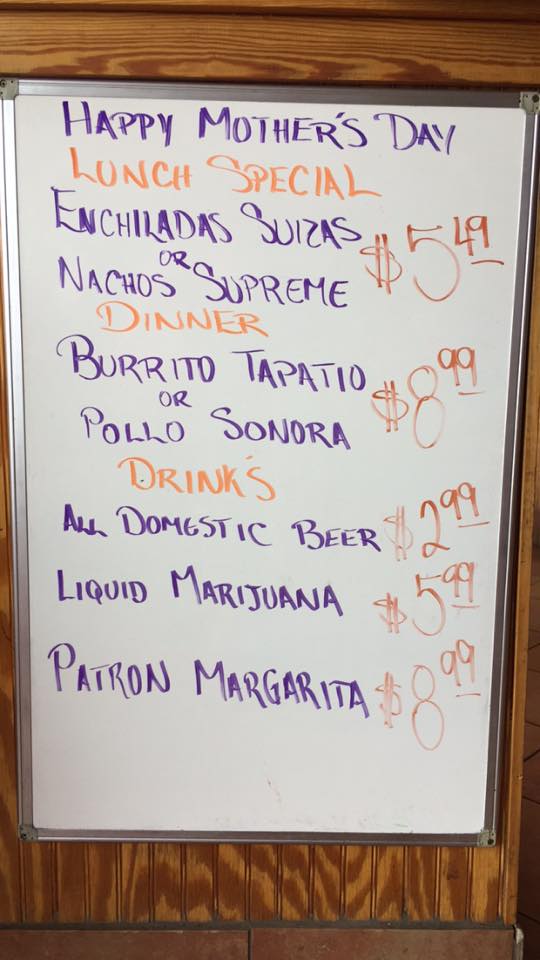 HAPPY MOTHER'S DAY
LUNCH SPECIAL
ENCHILADAS SUIZAS
OR
NACHOS SUPREME
$5.49
DINNER
BURRITO TAPATIO
OR
POLLO SONORA
$8.99
DRINK'S
ALL DOMESTIC BEER $2.99
LIQUID MARIJUANA $5.99
PATRON MARGARITA $8.99